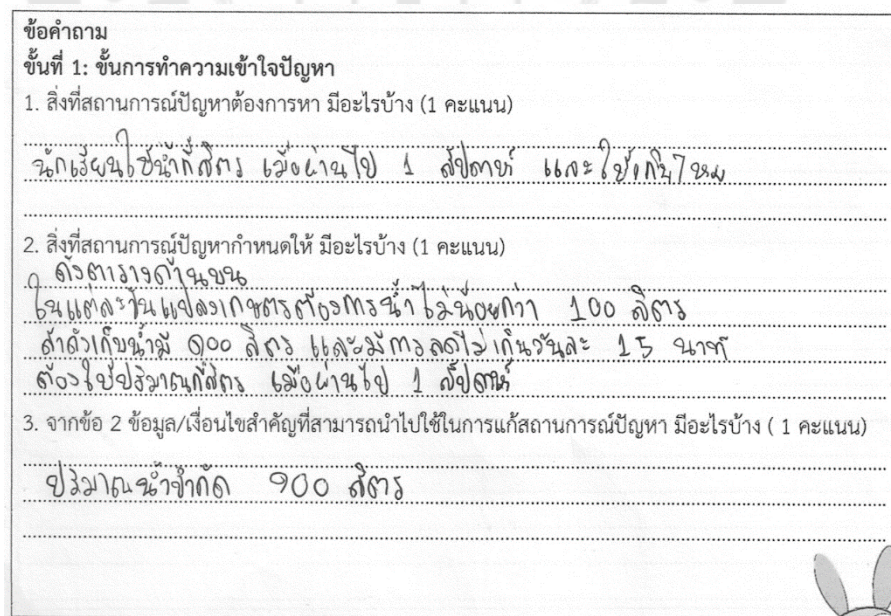 ข้อคำถาม
ขั้นที่ 1: ขั้นการทำความเข้าใจปัญหา
1. สิ่งที่สถานการณ์ปัญหาต้องการหา มีอะไรบ้าง (1 คะแนน)
นักเรียนใช้น้ำกี่ลิตร เมื่อผ่านไป 1 สัปดาห์ และใช้เกินไหม
2. สิ่งที่สถานการณ์ปัญหากำหนดให้ มีอะไรบ้าง (1 คะแนน)
ดังตารางด้านบน
ในแต่ละวันแปลงเกษตรต้องการน้ำไม่น้อยกว่า 100 ลิตร
ถ้าถังเก็บน้ำมี 900 ลิตร และมีการลดไม่เกินวันละ 15 นาที
ต้องใช้ปริมาณกี่ลิตร เมื่อผ่านไป 1 สัปดาห์
3. จากข้อ 2 ข้อมูล/เงื่อนไขสำคัญที่สามารถนำไปใช้ในการแก้สถานการณ์ปัญหา มีอะไรบ้าง ( 1 คะแนน)
ปริมาณน้ำจำกัด 900 ลิตร